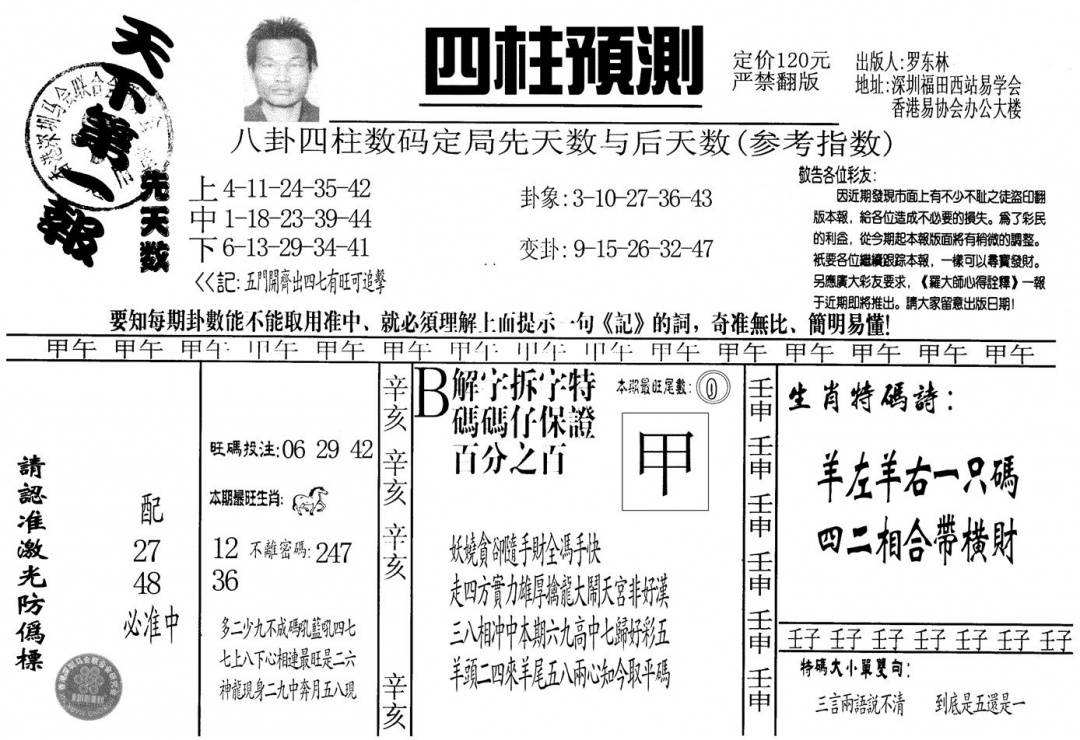 天下第一報
四柱預測
定价120元
严禁翻版
出版人:罗东林
地址:深圳福田西站易学会
香港易协会办公大楼
八卦四柱数码定局先天数与后天数(参考指数)
先天数
上4-11-24-35-42
中1-18-23-39-44
下6-13-29-34-41
<<記:五門開齊出四七有旺可追擊
卦象:3-10-27-36-43
变卦:9-15-26-32-47
敬告各位彩友:
因近期發現市面上有不少不耻之徒盜印翻
版本報，給各位造成不必要的損失。爲了彩民
的利益，從今期起本報版面將有稍微的調整。
衹要各位繼續跟踪本報，一樣可以尋寶發財。
另應廣大彩友要求，《羅大師心得詮釋》一報
于近期即將推出。請大家留意出版日期!
要知每期卦數能不能取用准中、就必須理解上面提示一句《記》的詞，奇准無比、簡明易懂!
甲午 甲午 甲午 甲午 甲午 甲午 甲午 甲午 甲午 甲午 甲午 甲午 甲午 甲午 甲午
請認准激光防僞標
配
27
48
必准中
旺碼投注:06 29 42
本期最旺生肖:
12 不離密碼:247
36
多二少九不成碼吼藍吼四七
七上八下心相連最旺是二六
神龍現身二九中奔月五八現
辛亥
辛亥
辛亥
辛亥
B解字拆字特
碼碼仔保證
百分之百
本期最旺尾數:0
甲
妖嬈貪卻隨手財全馮手快
走四方實力雄厚擒龍大鬧天宮非好漢
三八相冲中本期六九高中七歸好彩五
羊頭二四來羊尾五八兩心知今取平碼
壬申
壬申
壬申
壬申
壬申
壬申
生肖特碼詩:
羊左羊右一只碼
四二相合帶横財
壬子 壬子 壬子 壬子 壬子 壬子 壬子
特碼大小單雙句:
三言兩語説不清 到底是五還是一